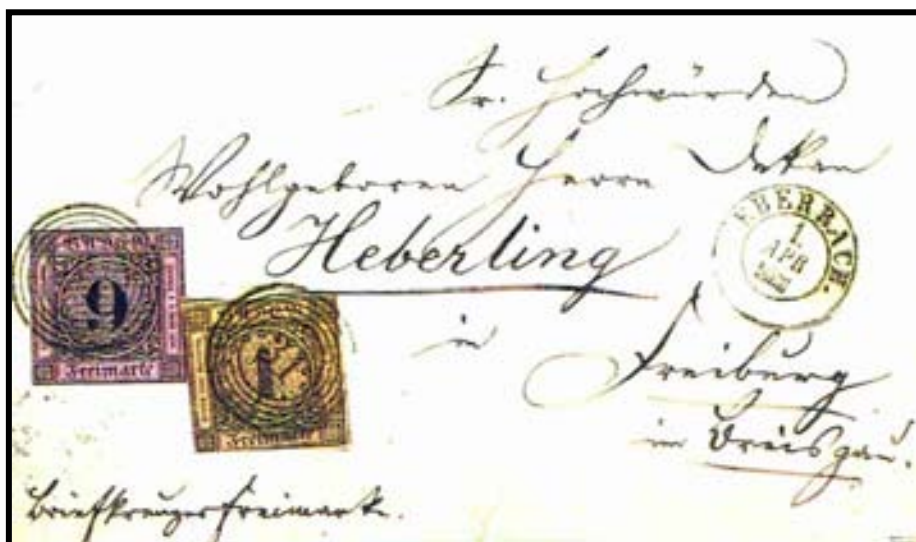 Sr. Hochwürden
Wohlgeboren Herrn Dekan
Heberling
in
Freiburg
im Breisgau.
EBERBACH.
1
APR
BADEN
9
Freimarke
1
Freimarke
Briefkreuzerfreimarke.